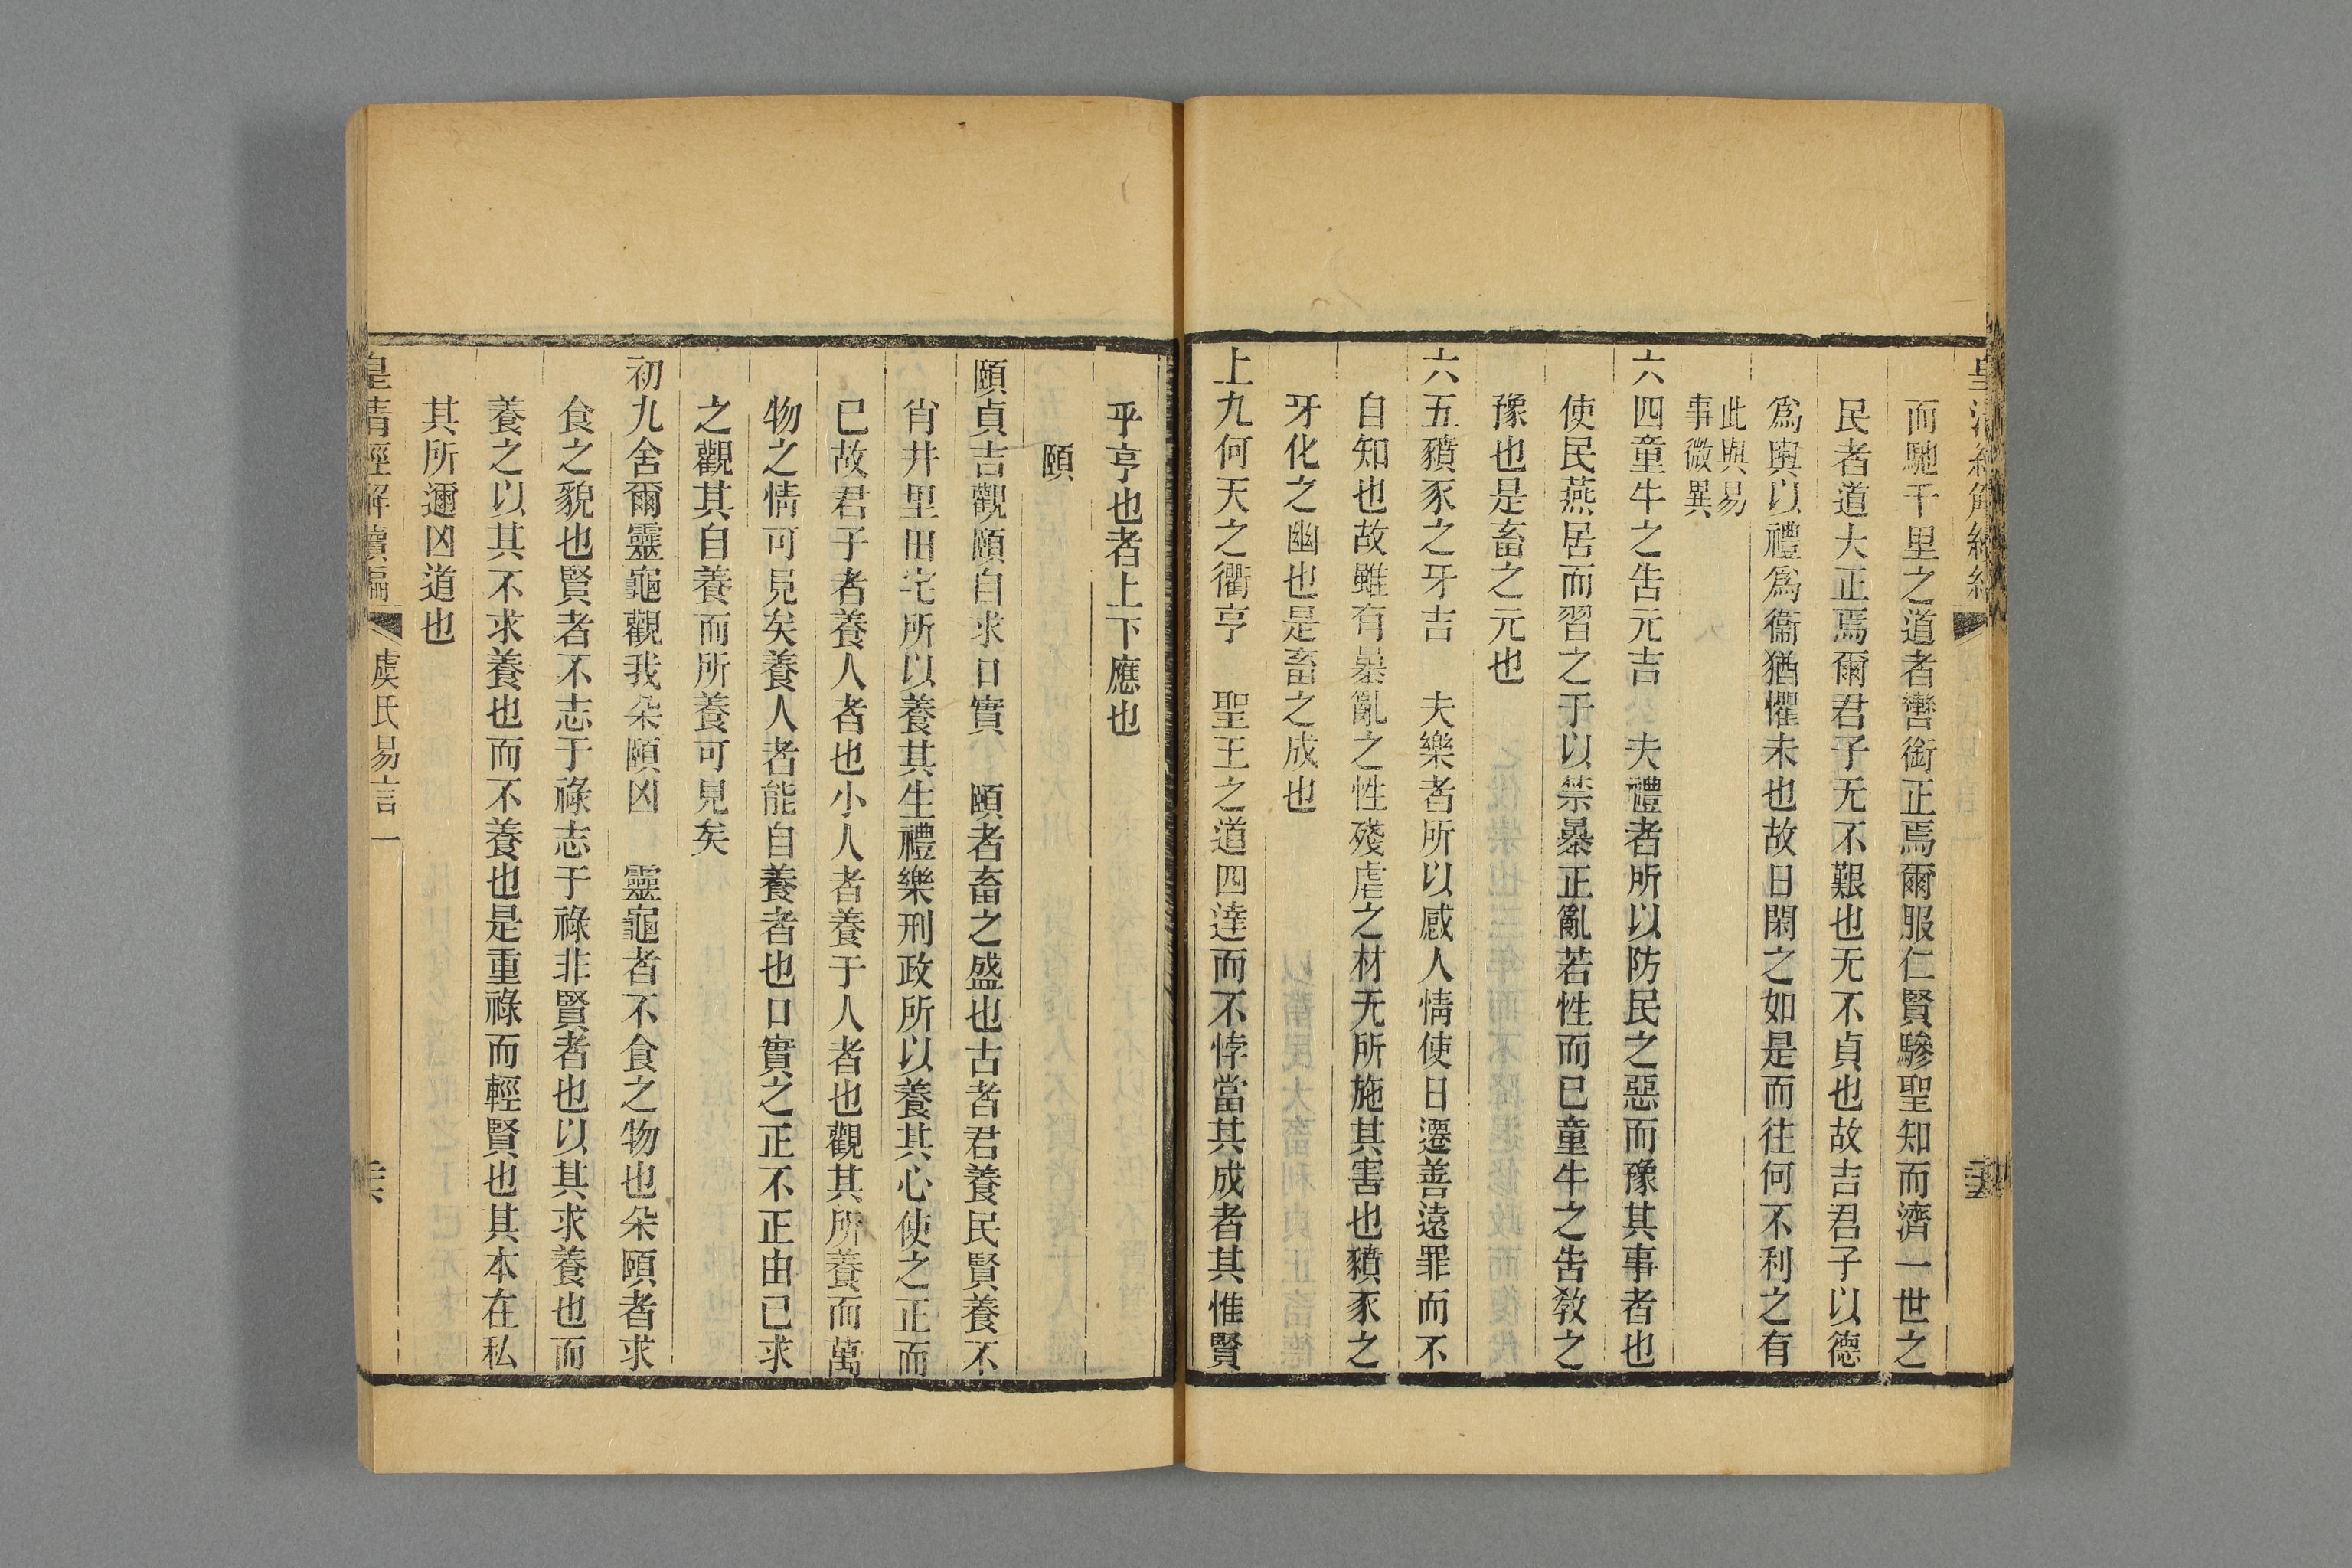 而馳千里之道者轡銜正焉爾服仁賢驂聖知而濟一世之
民者道大正焉爾君子无不艱也无不貞也故吉君子以德
爲輿以禮爲衞猶懼未也故日閑之如是而往何不利之有
此與易
事微異
六四童牛之告元吉　夫禮者所以防民之惡而豫其事者也
使民燕居而習之于以禁暴正亂若性而已童牛之告敎之
豫也是畜之元也
六五豶豕之牙吉　夫樂者所以感人情使日遷善遠罪而不
自知也故雖有暴亂之性殘虐之材无所施其害也豶豕之
牙化之幽也是畜之成也
上九何天之衢亨　聖王之道四達而不悖當其成者其惟賢
乎亨也者上下應也
頤
頤貞吉觀頤自求口實　頤者畜之盛也古者君養民賢養不
肖井里田宅所以養其生禮樂刑政所以養其心使之正而
已故君子者養人者也小人者養于人者也觀其所養而萬
物之情可見矣養人者能自養者也口實之正不正由己求
之觀其自養而所養可見矣
初九舍爾靈龜觀我朵頤凶　靈龜者不食之物也朵頤者求
食之貌也賢者不志于祿志于祿非賢者也以其求養也而
養之以其不求養也而不養也是重祿而輕賢也其本在私
其所邇凶道也
皇清經解續編　虞氏易言一